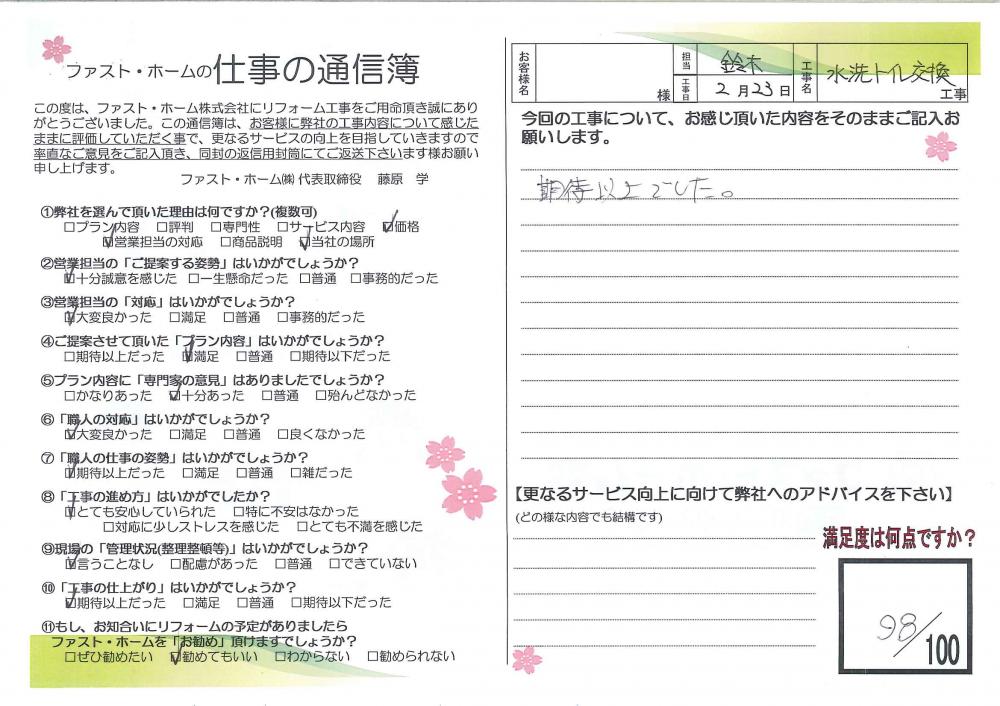 ファスト・ホームの仕事の通信簿
この度は、ファスト・ホーム株式会社にリフォーム工事をご用命頂き誠にあり
がとうございました。この通信簿は、お客様に弊社の工事内容について感じた
ままに評価していただく事で、更なるサービスの向上を目指していきますので
率直なご意見をご記入頂き、同封の返信用封筒にてご返送下さいます様お願い
申し上げます。
ファスト・ホーム㈱ 代表取締役 藤原 学
①弊社を選んで頂いた理由は何ですか？(複数可)
□プラン内容 □評判 □専門性 □サービス内容 ☑価格
☑営業担当の対応 □商品説明 ☑当社の場所
②営業担当の「ご提案する姿勢」はいかがでしょうか？
☑十分誠意を感じた □一生懸命だった □普通 □事務的だった
③営業担当の「対応」はいかがでしょうか？
☑大変良かった □満足 □普通 □事務的だった
④ご提案させて頂いた「プラン内容」はいかがでしょうか？
□期待以上だった ☑満足 □普通 □期待以下だった
⑤プラン内容に「専門家の意見」はありましたでしょうか？
□かなりあった ☑十分あった □普通 □殆んどなかった
⑥「職人の対応」はいかがでしょうか？
☑大変良かった □満足 □普通 □良くなかった
⑦「職人の仕事の姿勢」はいかがでしょうか？
☑期待以上だった □満足 □普通 □雑だった
⑧「工事の進め方」はいかがでしたか？
☑とても安心していられた □特に不安はなかった
□対応に少しストレスを感じた □とても不満を感じた
⑨現場の「管理状況(整理整頓等)」はいかがでしょうか？
☑言うことなし □配慮があった □普通 □できていない
⑩「工事の仕上がり」はいかがでしょうか？
☑期待以上だった □満足 □普通 □期待以下だった
⑪もし、お知合いにリフォームの予定がありましたら
ファスト・ホームを「お勧め」頂けますでしょうか？
□ぜひ勧めたい ☑勧めてもいい □わからない □勧められない
お客様名 様 担当 鈴木 工事日 2月23日 工事名 水洗トイレ交換 工事
今回の工事について、お感じ頂いた内容をそのままご記入お
願いします。
期待以上でした。
【更なるサービス向上に向けて弊社へのアドバイスを下さい】
(どの様な内容でも結構です)
満足度は何点ですか？
98/100